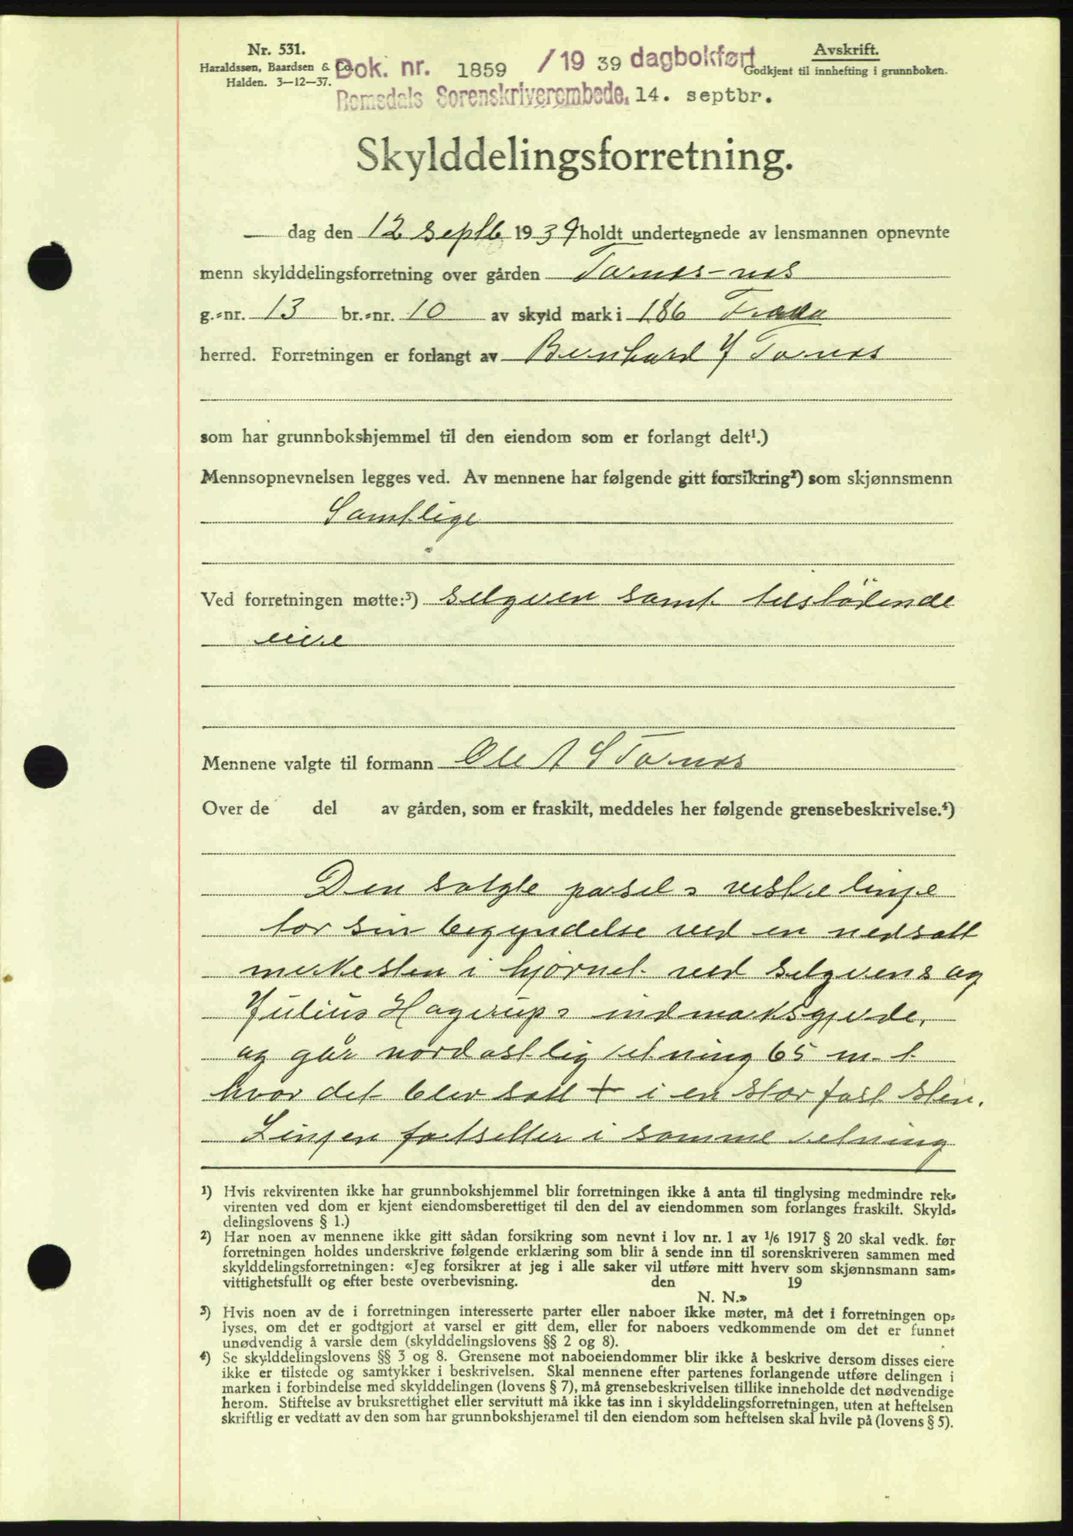 Nr. 531.
Haraldssen, Baardsen & Co.
Halden. 3—12—37.
Dok. nr. 1859 /19 39 dagbokført
Romsdals Sorenskriverembede, 14. septbr.
Avskrift.
Godkjent til innhefting i grunnboken.
Skylddelingsforretning.
dag den 12 septb 1939 holdt undertegnede av lensmannen opnevnte
menn skylddelingsforretning over gården Tornes-nes
g.-nr. 13 br.-nr. 10 av skyld mark 1.86 i Fræna
herred. Forretningen er forlangt av Bernhard J Tornes
som har grunnbokshjemmel til den eiendom som er forlangt delt¹.)
Mennsopnevnelsen legges ved. Av mennene har følgende gitt forsikring²) som skjønnsmenn
Samtlige
Ved forretningen møtte:³) selgeren samt tilstøtende
eiere
Mennene valgte til formann Ole A S Tornes
Over de del av gården, som er fraskilt, meddeles her følgende grensebeskrivelse.⁴)
Den solgte parsels vestre linje
tar sin begyndelse ved en nedsatt
merkesten i hjørnet ved selgerens og
Julius Hagerups indmarksgjerde,
og går nordøstlig retning 65 m. t
hvor det blev satt + i en stor fast sten.
Linjen fortsetter i samme retning
¹) Hvis rekvirenten ikke har grunnbokshjemmel blir forretningen ikke å anta til tinglysing medmindre rek-
virenten ved dom er kjent eiendomsberettiget til den del av eiendommen som forlanges fraskilt. Skyld-
delingslovens § 1.)
²) Har noen av mennene ikke gitt sådan forsikring som nevnt i lov nr. 1 av ¹/6 1917 § 20 skal vedk. før
forretningen holdes underskrive følgende erklæring som blir å sende inn til sorenskriveren sammen med
skylddelingsforretningen: «Jeg forsikrer at jeg i alle saker vil utføre mitt hverv som skjønnsmann sam-
vittighetsfullt og efter beste overbevisning. den 19
N. N.»
³) Hvis noen av de i forretningen interesserte parter eller naboer ikke møter, må det i forretningen op-
lyses, om det er godtgjort at varsel er gitt dem, eller for naboers vedkommende om det er funnet
unødvendig å varsle dem (skylddelingslovens §§ 2 og 8).
⁴) Se skylddelingslovens §§ 3 og 8. Grensene mot naboeiendommer blir ikke å beskrive dersom disses eiere
ikke er tilstede og samtykker i beskrivelsen. Skal mennene efter partenes forlangende utføre delingen i
marken i forbindelse med skylddelingen (lovens § 7), må grensebeskrivelsen tillike inneholde det nødvendige
herom. Stiftelse av bruksrettighet eller servitutt må ikke tas inn i skylddelingsforretningen, uten at heftelsen
skriftlig er vedtatt av den som har grunnbokshjemmel til den eiendom som heftelsen skal hvile på (lovens § 5).